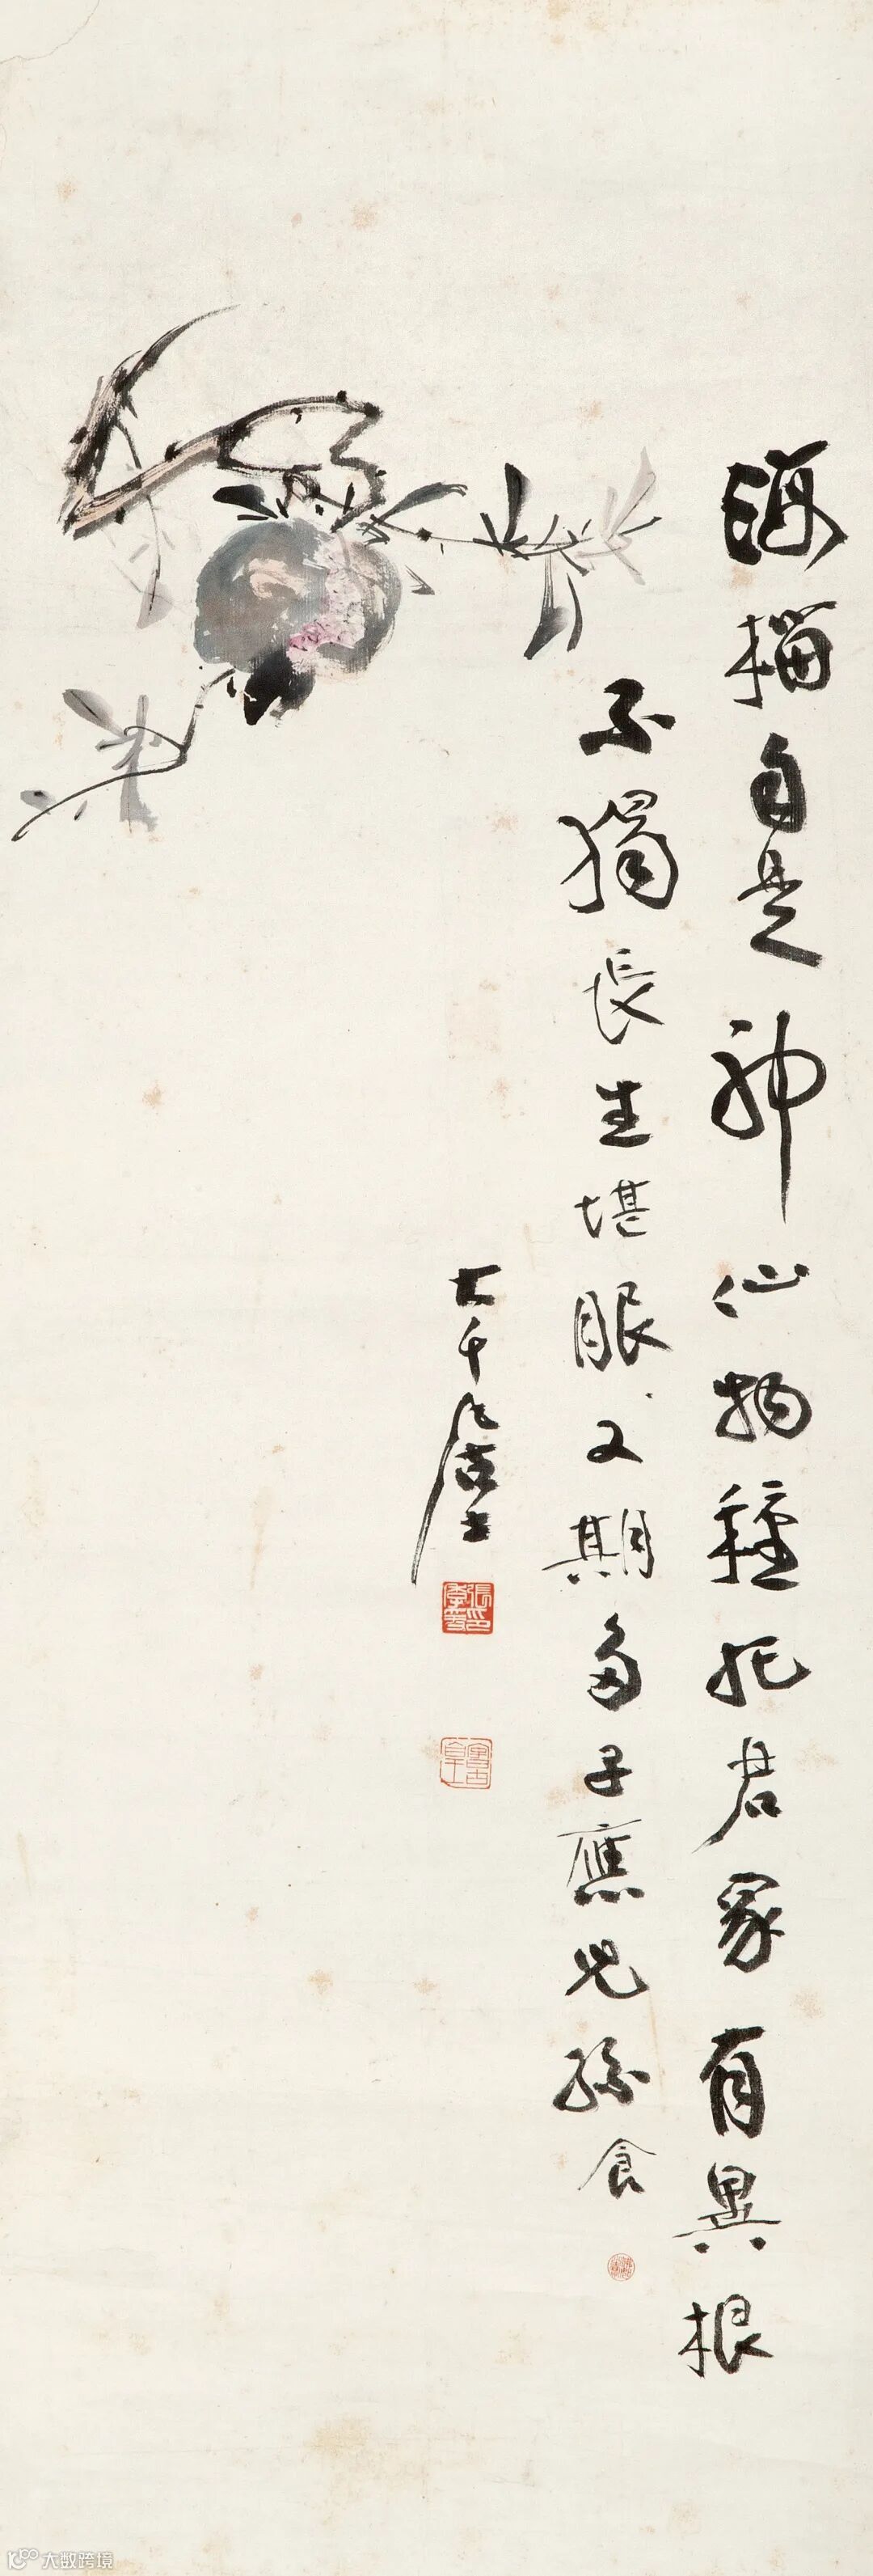 海榴自是神仙物種托君家有異根
不獨長生堪服又期多子應兒孫食
大千居士
大数跨境